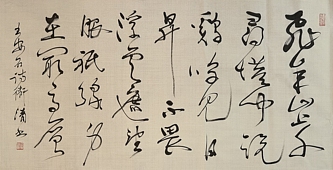 飛來山上千
尋塔聞説
鷄鳴見日
昇不畏
浮雲遮望
眼祇緣身
在最高層
王安石詩衛清书